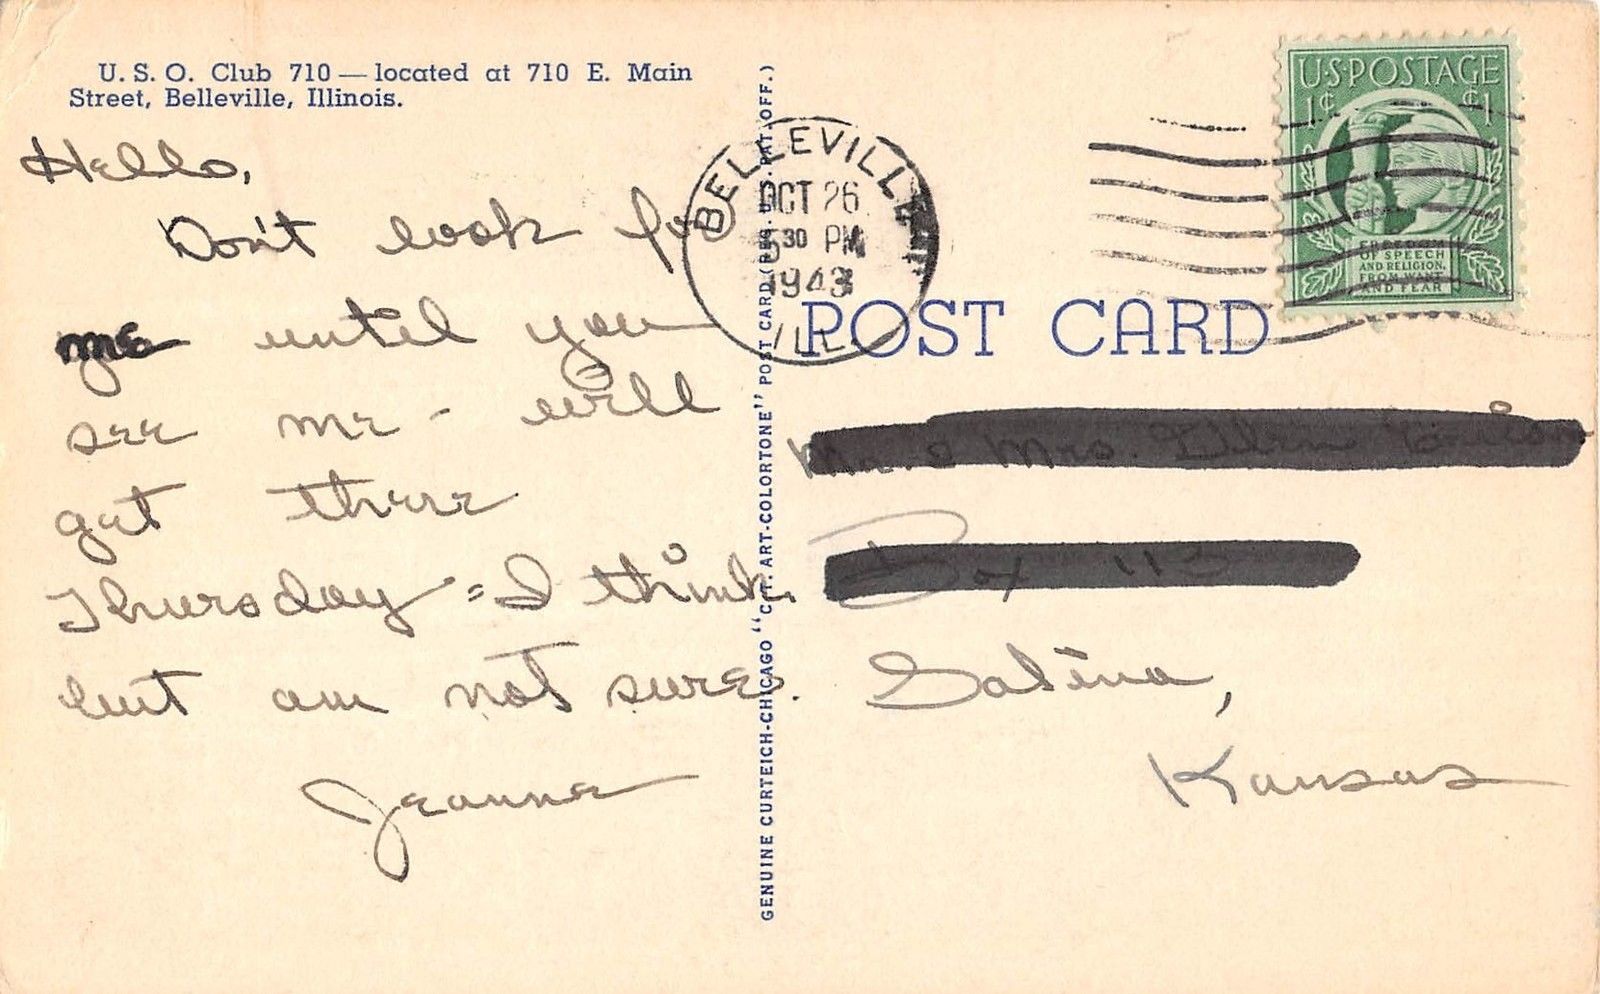 U. S. O. Club 710 — located at 710 E. Main
Street, Belleville, Illinois.
Hello,
Don't look for
me until you
see me - will
get there
Thursday = I think
but am not sure.
Jeanne
GENUINE CURTEICH-CHICAGO "C.T. ART-COLORTONE" POST CARD (REG. U.S. PAT. OFF.)
BELLEVILLE
OCT 26
5 30 PM
1943
ILL.
U·S·POSTAGE
1¢ ¢1
FREEDOM
OF SPEECH
AND RELIGION,
FROM WANT
AND FEAR
POST CARD
Mr. & Mrs.
Box 113
Salina,
Kansas